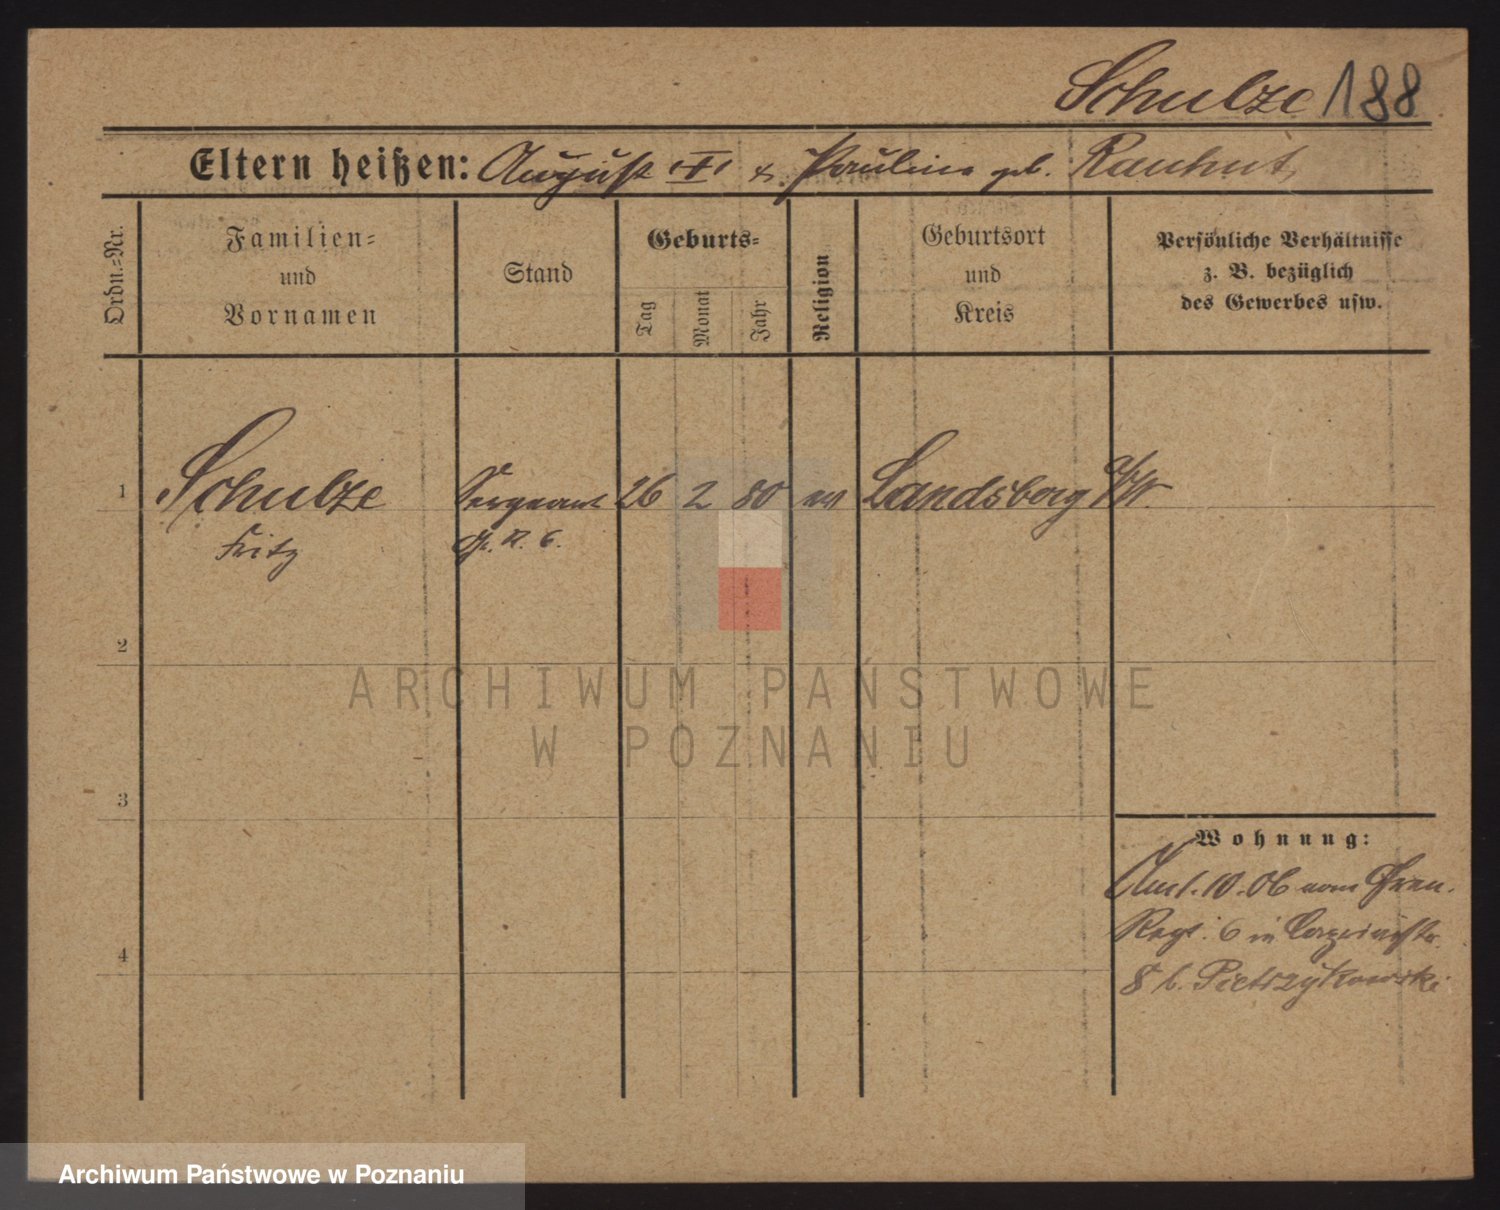 Schulze 188
Eltern heißen: August & Pauline geb. Rauhut
Ordn.-Nr.
Familien-
und
Vornamen
Stand
Geburts-
Tag
Monat
Jahr
Religion
Geburtsort
und
Kreis
Persönliche Verhältnisse
z. B. bezüglich
des Gewerbes usw.
1 Schulze Sergeant 26 2 80 ev Landsberg a/W.
Fritz Gr. R. 6.
2
3
4
Wohnung:
10.06 vom Gren.
Regt. 6 in
8 b. Pietrzykowski
ARCHIWUM PAŃSTWOWE
W POZNANIU
Archiwum Państwowe w Poznaniu